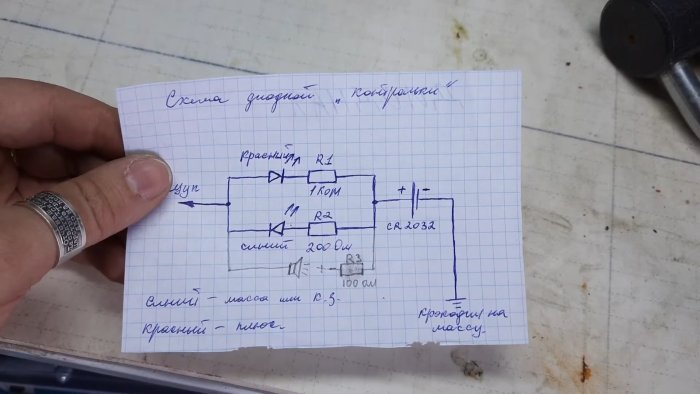 Схема диодной „контрольки"
Красный R1
1 Ком
Щуп
+ -
R2
CR2032
синий 200 Ом
+ - R3
100 ом
Синий - масса или К.З.
Красный - плюс.
Крокодил на
массу